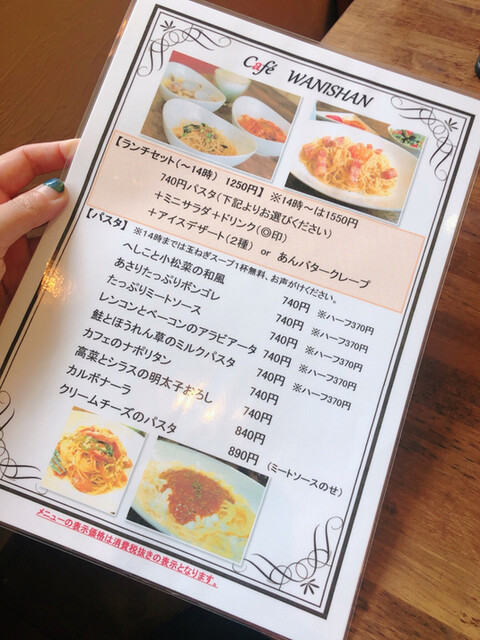 Café WANISHAN
【ランチセット(~14時) 1250円】 ※14時~は1550円
740円パスタ(下記よりお選びください)
+ミニサラダ+ドリンク(◎印)
+アイスデザート(2種) or あんバタークレープ
【パスタ】 ※14時までは玉ねぎスープ1杯無料、お声がけください。
へしこと小松菜の和風 740円 ※ハーフ370円
あさりたっぷりボンゴレ 740円 ※ハーフ370円
たっぷりミートソース 740円 ※ハーフ370円
レンコンとベーコンのアラビアータ 740円 ※ハーフ370円
鮭とほうれん草のミルクパスタ 740円 ※ハーフ370円
カフェのナポリタン 740円
高菜とシラスの明太子おろし 740円
カルボナーラ 840円
クリームチーズのパスタ 890円 (ミートソースのせ)
メニューの表示価格は消費税抜きの表示となります。